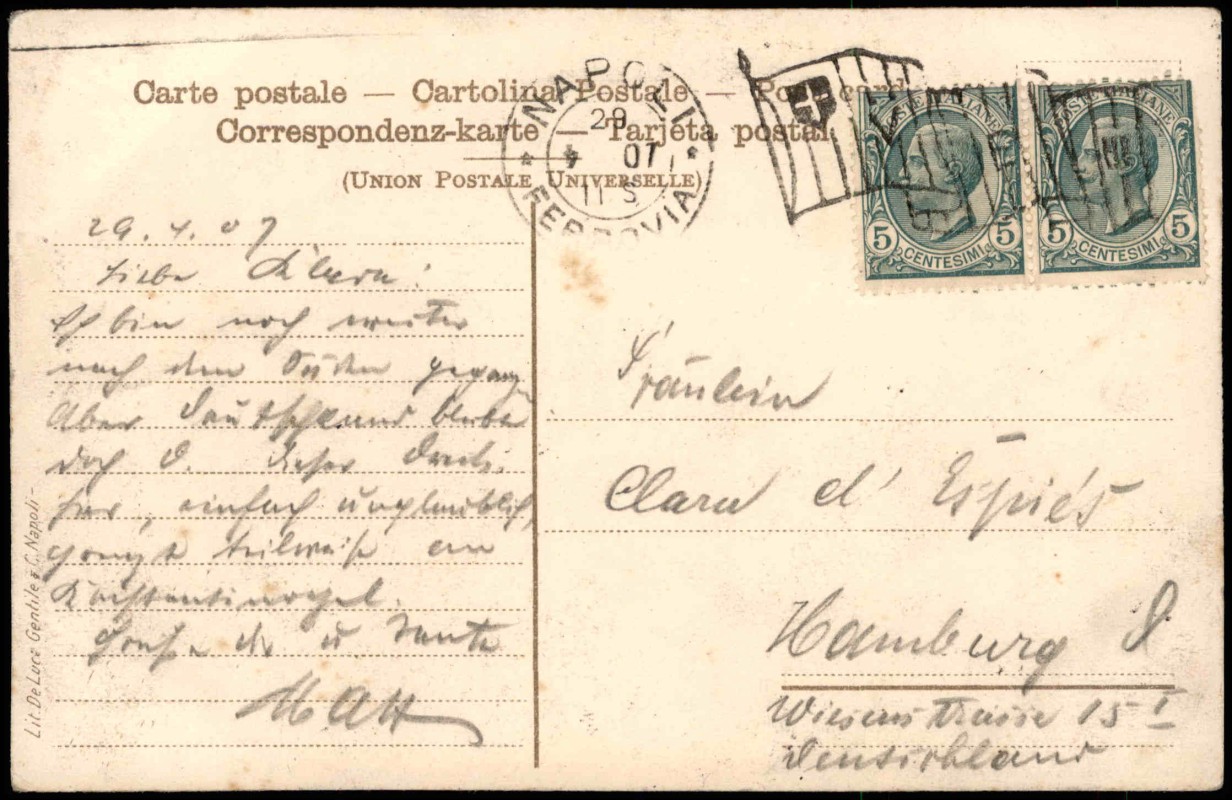 Carte postale — Cartolina Postale — Postcard
Correspondenz-karte — Tarjeta postal
(Union Postale Universelle)
NAPOLI
29
4 07
11 S
* FERROVIA *
POSTE ITALIANE
5 CENTESIMI 5
POSTE ITALIANE
5 CENTESIMI 5
29. 4. 07
Liebe Klara!
Ich bin noch weiter
nach dem Süden gegang
Aber Deutschland bleibt
doch D. dieser
, einfach unglaublich,
teilweise an
Konstantinopel.
Grüße dir u Tante
Lit. De Luca Gentile & C. Napoli -
Fräulein
Clara d'Espiés
Hamburg
Wiesenstrasse 15 I
Deutschland